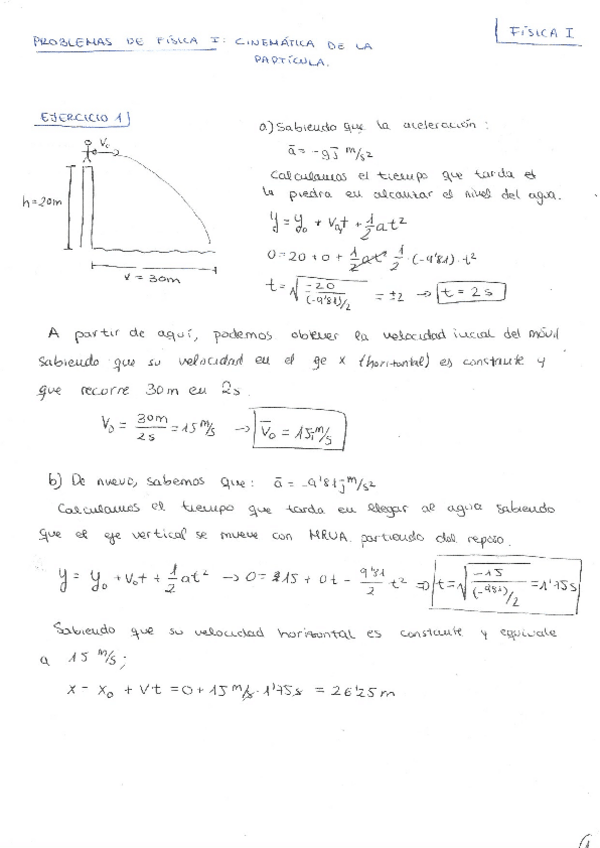 FÍSICA I
PROBLEMAS DE FÍSICA I: CINEMÁTICA DE LA
PARTÍCULA.
EJERCICIO 1)
V₀
h=20m
v = 30m
a) Sabiendo que la aceleración:
ā = -gj m/s²
Calculamos el tiempo que tarda el
la piedra en alcanzar el nivel del agua.
y = y₀ + V₀t + 1/2 at²
0 = 20 + 0 + 1/2 at² 1/2 · (-9'81) · t²
t = √(-20/(-9'81)/2) = ±2 → t = 2s
A partir de aquí, podemos obtener la velocidad inicial del móvil
sabiendo que su velocidad en el eje x (horizontal) es constante y
que recorre 30m en 2s.
V₀ = 30m/2s = 15 m/s → V̄₀ = 15i m/s
b) De nuevo, sabemos que: ā = -9'81j m/s²
Calculamos el tiempo que tarda en llegar al agua sabiendo
que el eje vertical se mueve con MRUA. partiendo del reposo.
y = y₀ + V₀t + 1/2 at² → 0 = 15 + 0t - 9'81/2 t² ⇒ t = √(-15/(-9'81)/2) = 1'75s
Sabiendo que su velocidad horizontal es constante y equivale
a 15 m/s;
x = x₀ + Vt = 0 + 15 m/s · 1'75s = 26'25m